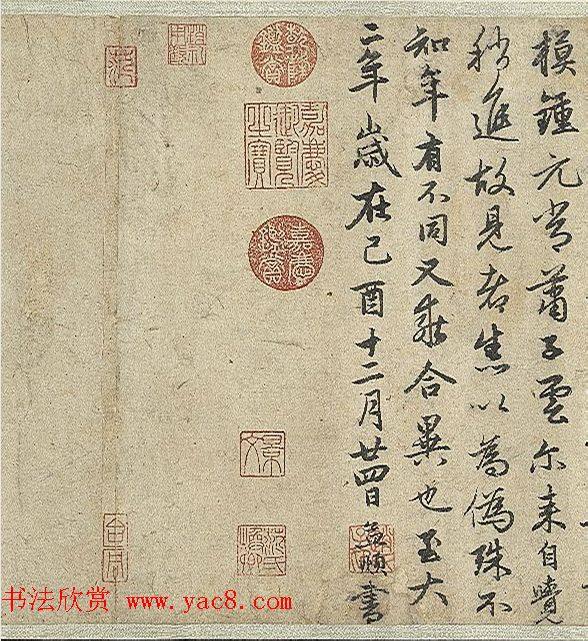 模鍾元常蕭子雲尔来自覺
稍進故見者悉以為偽殊不
知年有不同又乖合異也至大
二年歲在己酉十二月廿四日孟頫書
嘉慶御覽之寶
嘉慶鑑賞
书法欣赏 www.yac8.com